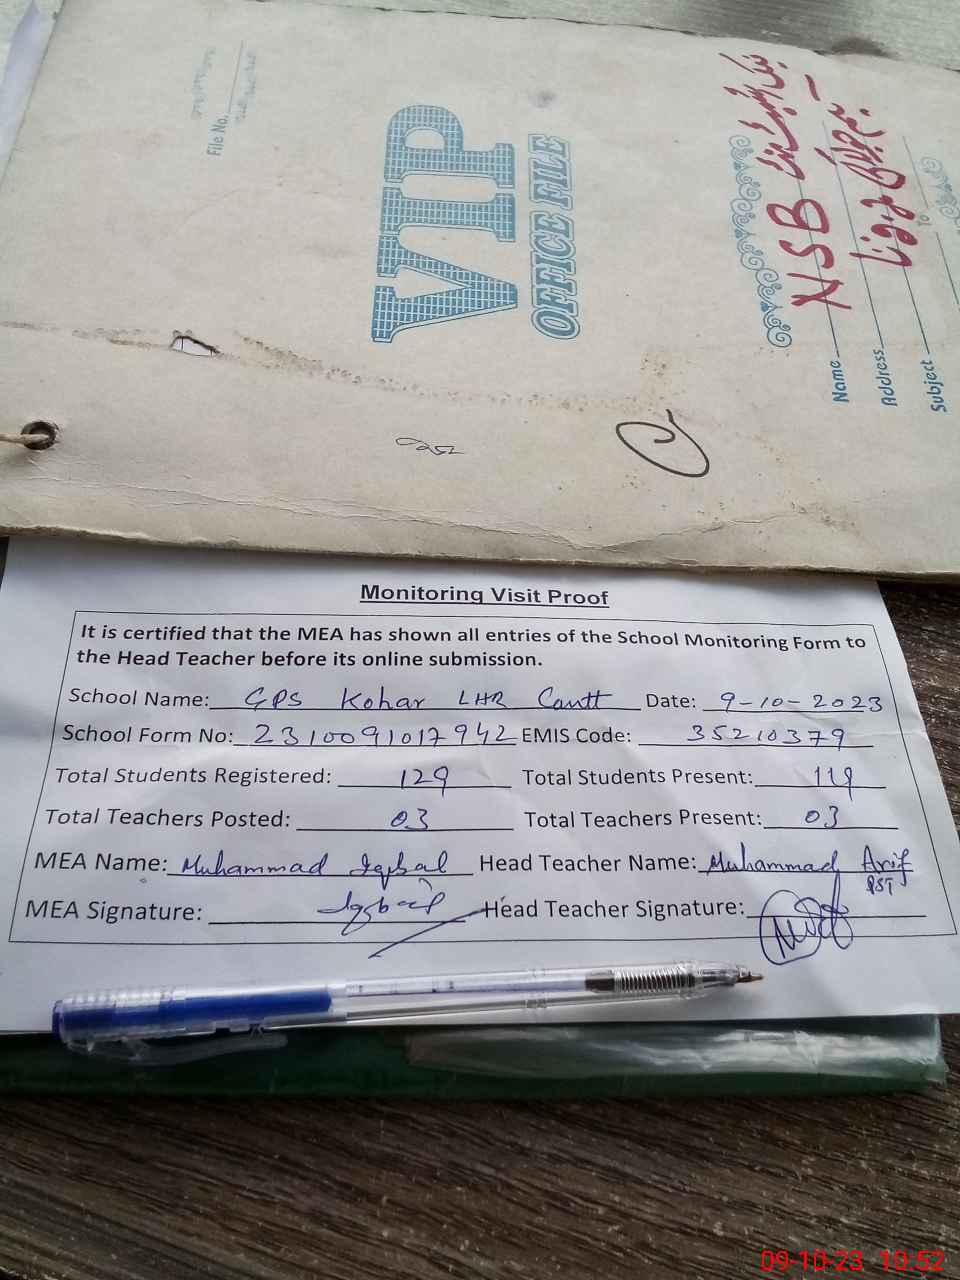 File No.
VIP
OFFICE FILE
NSB
Name
Address
To
Subject
Monitoring Visit Proof
It is certified that the MEA has shown all entries of the School Monitoring Form to
the Head Teacher before its online submission.
School Name: GPS Kohar LHR Cantt Date: 9-10-2023
School Form No: 2310091017942 EMIS Code: 35210379
Total Students Registered: 129 Total Students Present: 119
Total Teachers Posted: 03 Total Teachers Present: 03
MEA Name: Muhammad Iqbal Head Teacher Name: Muhammad Arif
PST
MEA Signature: Iqbal Head Teacher Signature:
09-10-23 10:52